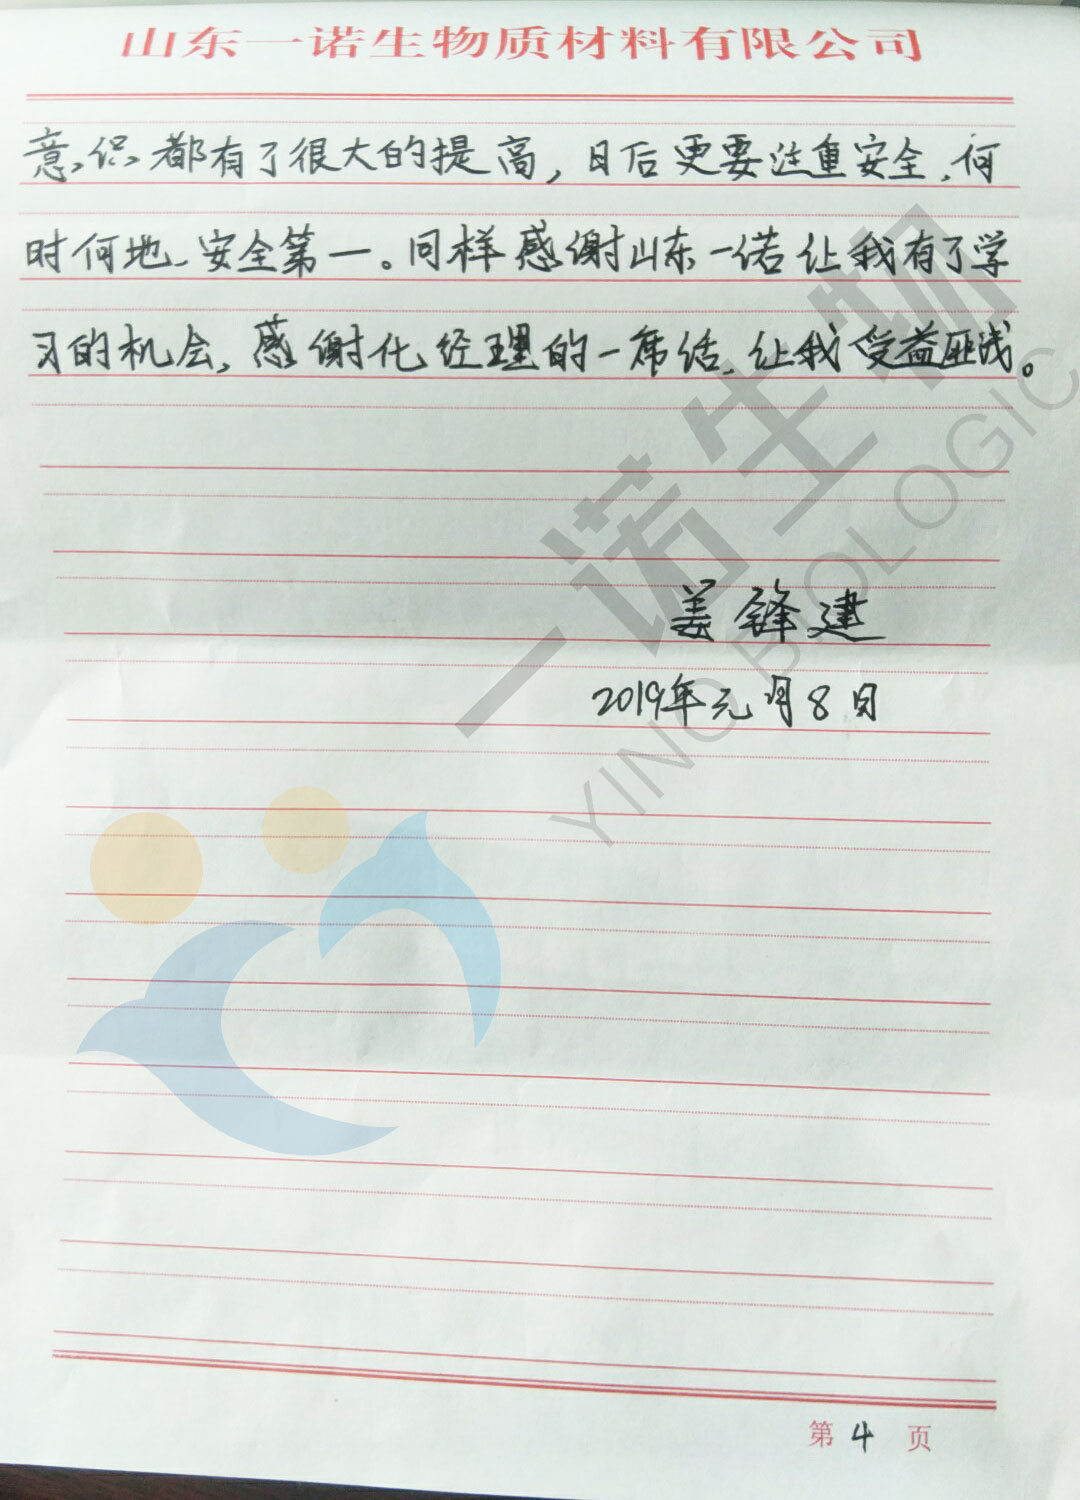 山东一诺生物质材料有限公司
意识都有了很大的提高，日后更要注重安全，何
时何地、安全第一。同样感谢山东一诺让我有了学
习的机会，感谢化经理的一席话，让我受益匪浅。
姜锋建
2019年元月8日
第 4 页
一诺生物
YINO BIOLOGIC